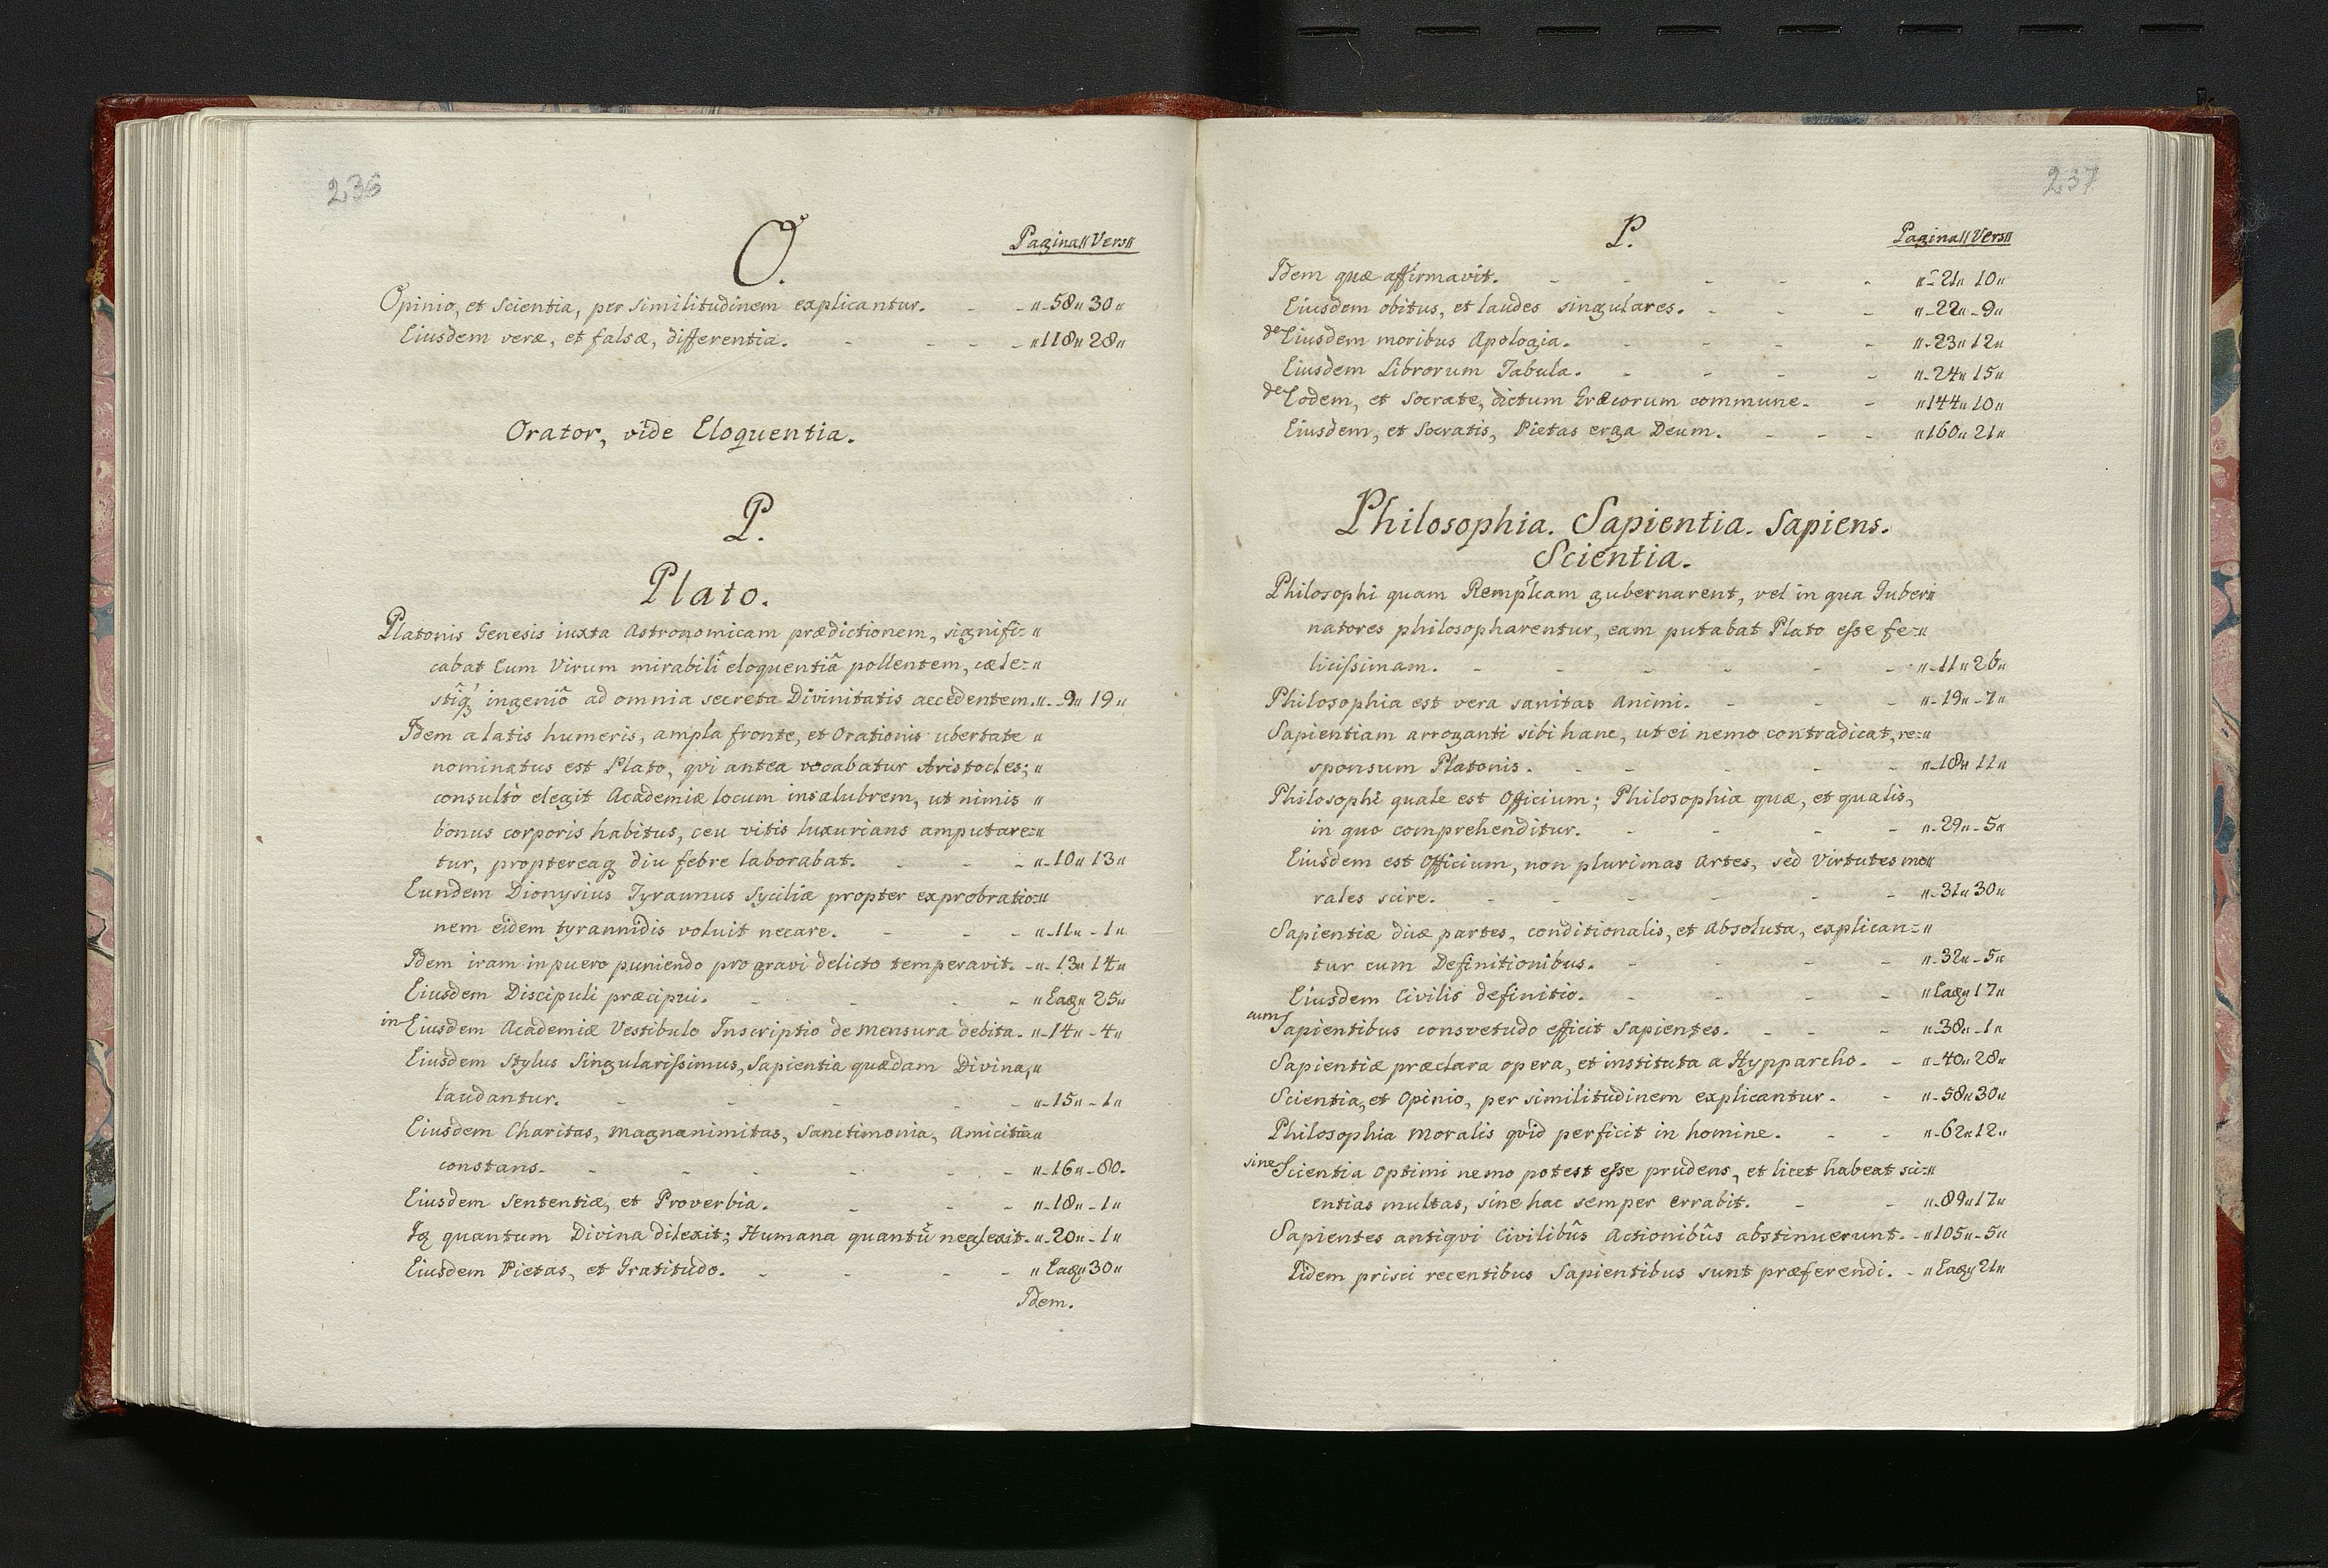 236
O.
Pagina〃Vers〃
Opinio, et Scientia, per similitudinem explicantur. - - 〃-58〃30〃
Eiusdem veræ, et falsæ, differentia. - - - - 〃118〃28〃
Orator, vide Eloquentia.
P.
Plato.
Platonis Genesis iuxta Astronomicam prædictionem, signifi=〃
cabat Eum Virum mirabilî eloquentiâ pollentem, cæle=〃
stîq́ꝫ ingeniô ad omnia secreta Divinitatis accedentem.〃-9〃19〃
Idem a latis humeris, ampla fronte, et Orationis ubertate 〃
nominatus est Plato, qvi antea vocabatur Aristocles; 〃
consultò elegit Academiæ locum insalubrem, ut nimis 〃
bonus corporis habitus, ceu vitis luxurians amputare=〃
tur, proptereaqꝫ diu febre laborabat. - - - 〃-10〃13〃
Eundem Dionysius Tyrannus Syciliæ propter exprobratio=〃
nem eidem tyrannidis voluit necare. - - - 〃-11〃-1〃
Idem iram in puero puniendo pro gravi delicto temperavit. -〃-13〃14〃
Eiusdem Discipuli præcipui. - - - - 〃Eaqꝫ〃25〃
in Eiusdem Academiæ Vestibulo Inscriptio de mensura debita. 〃-14〃-4〃
Eiusdem Stylus Singularissimus, Sapientia quædam Divina,〃
laudantur. - - - - - 〃-15〃-1〃
Eiusdem Charitas, Magnanimitas, Sanctimonia, Amicitia〃
constans. - - - - - - 〃-16〃-80.
Eiusdem Sententiæ, et Proverbia. - - - 〃-18〃-1〃
Iqꝫ quantum Divina dilexit; Humana quantũ neglexit. 〃-20〃-1〃
Eiusdem Pietas, et Gratitudo. - - - - 〃Eaqꝫ〃30〃
Idem.
237
P.
Pagina〃Vers〃
Idem quæ affirmavit. - - - - - 〃-21〃10〃
Eiusdem obitus, et laudes singulares. - - - 〃-22〃-9〃
de Eiusdem moribus Apologia. - - - - 〃-23〃12〃
Eiusdem Librorum Tabula. - - - - 〃-24〃15〃
de Eodem, et Socrate, dictum Græcorum commune. - 〃144〃10〃
Eiusdem, et Socratis, Pietas erga Deum. - - - 〃160〃21〃
Philosophia. Sapientia. Sapiens.
Scientia.
Philosophi quam Remplcam gubernarent, vel in qua Guber〃
natores philosopharentur, eam putabat Plato esse fe=〃
licissimam. - - - - - - 〃-11〃26〃
Philosophia est vera sanitas Animi. - - - 〃-19〃-7〃
Sapientiam arroganti sibi hanc, ut ei nemo contradicat, re=〃
sponsum Platonis. - - - - - 〃-18〃11〃
Philosophi quale est Officium; Philosophia quæ, et qualis,
in quo comprehenditur. - - - - 〃-29〃-5〃
Eiusdem est Officium, non plurimas Artes, sed Virtutes mo〃
rales scire. - - - - - - 〃-31〃30〃
Sapientiæ duæ partes, conditionalis, et Absoluta, explican=〃
tur cum Definitionibus. - - - - 〃-32〃-5〃
Eiusdem Civilis definitio. - - - - 〃Eaqꝫ〃17〃
cum Sapientibus consvetudo efficit Sapientes. - - - 〃-38〃-1〃
Sapientiæ præclara opera, et instituta a Hypparcho. - 〃-40〃28〃
Scientia, et Opinio, per similitudinem explicantur. - 〃-58〃30〃
Philosophia Moralis qvid perficit in homine. - - 〃-62〃12〃
sine Scientia Optimi nemo potest esse prudens, et licet habeat sci=〃
entias multas, sine hac semper errabit. - - 〃-89〃17〃
Sapientes antiqvi Civilibûs Actionibûs abstinuerunt. -〃105〃-5〃
Iidem prisci recentibus Sapientibus sunt præferendi. - 〃Eaqꝫ〃21〃